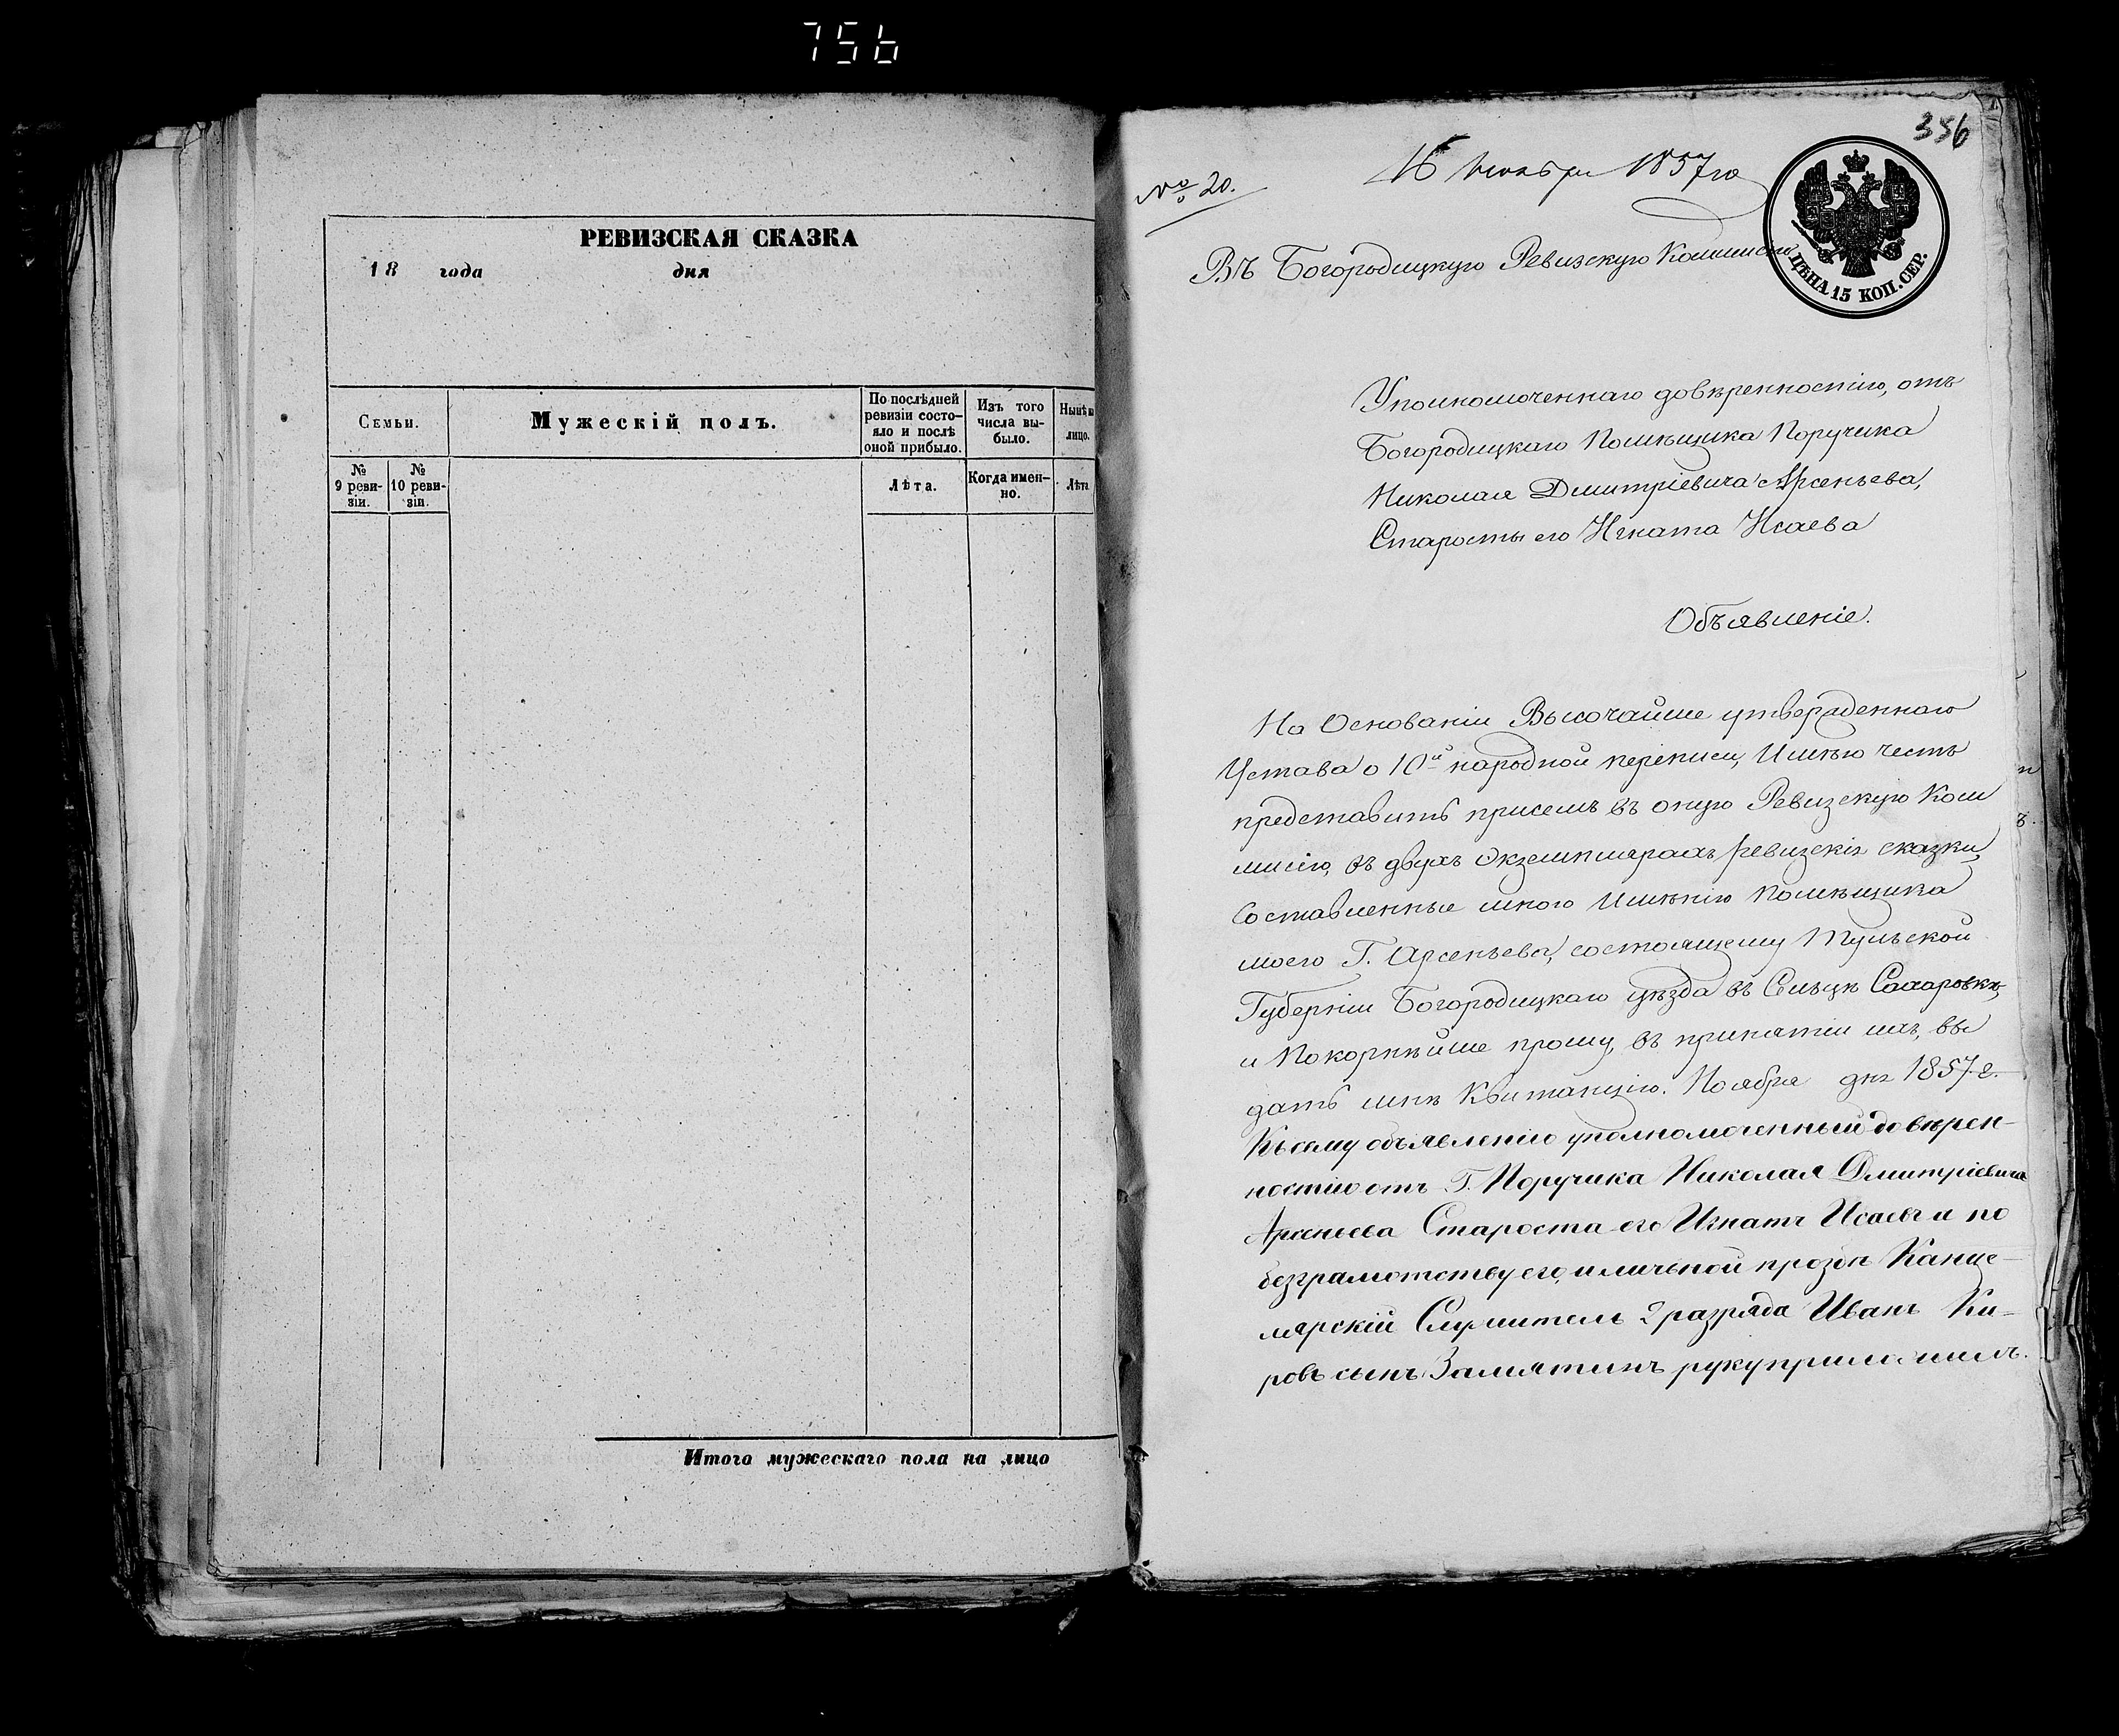 756
РЕВИЗСКАЯ СКАЗКА
18 года дня
Семьи.
Мужескій полъ.
По послѣдней
ревизіи состо-
яло и послѣ
оной прибыло.
Изъ того
числа вы-
было.
Нынѣ на
лицо.
№
9 реви-
зіи.
№
10 реви-
зіи.
Лѣта.
Когда имен-
но.
Лѣта
Итого мужескаго пола на лицо
356
№ 20.
16 Ноября 1857 го
Въ Богородицкую Ревизскую Коммисію
ЦѢНА 15 КОП. СЕР.
Уполномоченнаго довѣренностію, отъ
Богородицкаго Помѣщика Поручика
Николая Дмитріевича Арсеньева,
Старосты его Игната Исаева
Объявленіе.
На Основаніи Высочайше утвержденнаго
Устава о 10й народной переписи, Имѣю честь
представить присемъ въ оную Ревизскую Ком
мисію, въ двухъ Экземплярахъ ревизскія сказки,
Составленные мною Имѣнію Помѣщика
моего Г. Арсеньева, состоящему Тульской
Губерніи Богородицкаго уѣзда въ Сельцѣ Сахаровкѣ,
и Покорнѣйше прошу, въ принятіи ихъ, вы
дать мнѣ Квитанцію. Ноября дня 1857 г.
Къ сему объявленію уполномоченный довѣрен-
ностію отъ Г. Поручика Николая Дмитріевича
Арсеньева Староста его Игнатъ Исаевъ а по
безграмотству его, и личной прозбѣ Канце-
лярскій Служитель 2 разряда Иванъ Ки-
ровъ сынъ Замятинъ руку приложилъ.